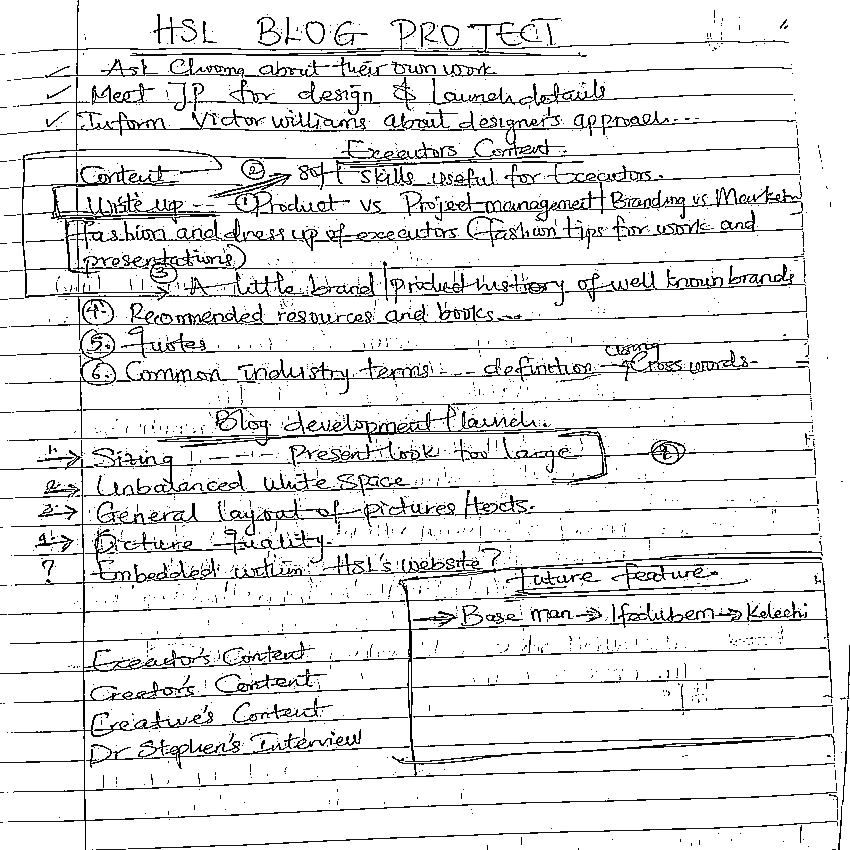 HSL BLOG PROJECT
✓ Ask Chioma about their own work
✓ Meet JP for design & Launch details
✓ Inform Victor williams about designer's approach...
Executors Content.
Content ② → soft skills useful for Executors.
Write up -- ① Product vs Project management | Branding vs Market
fashion and dress up of executors (fashion tips for work and
presentations)
③ → A little brand/product history of well known brands
④. Recommended resources and books...
⑤. Quotes
⑥. Common industry terms --- definition - using Cross words-
Blog development/launch.
1→ Sizing --- Present look too large
2→ Unbalanced White Space
3→ General layout of pictures/texts.
4→ Picture Quality.
? Embedded within HSL's website?
Future feature.
→ Base man → Ifedubem → Kelechi
Executor's Content
Creator's Content
Creative's Content
Dr Stephen's Interview